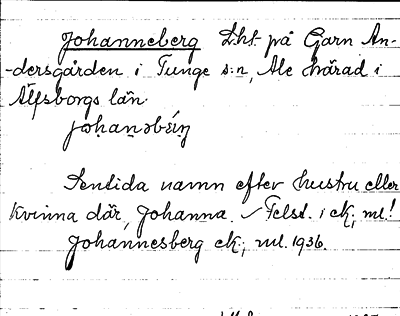 Johanneberg Lht. på Garn An-
-dersgården i Tunge s:n, Ale härad i
Älfsborgs län.
johanəbä́rj
Sentida namn efter hustru eller
kvinna där, Johanna. ✓ Felst. i ek., ml!
Johannesberg ek., ml. 1936.